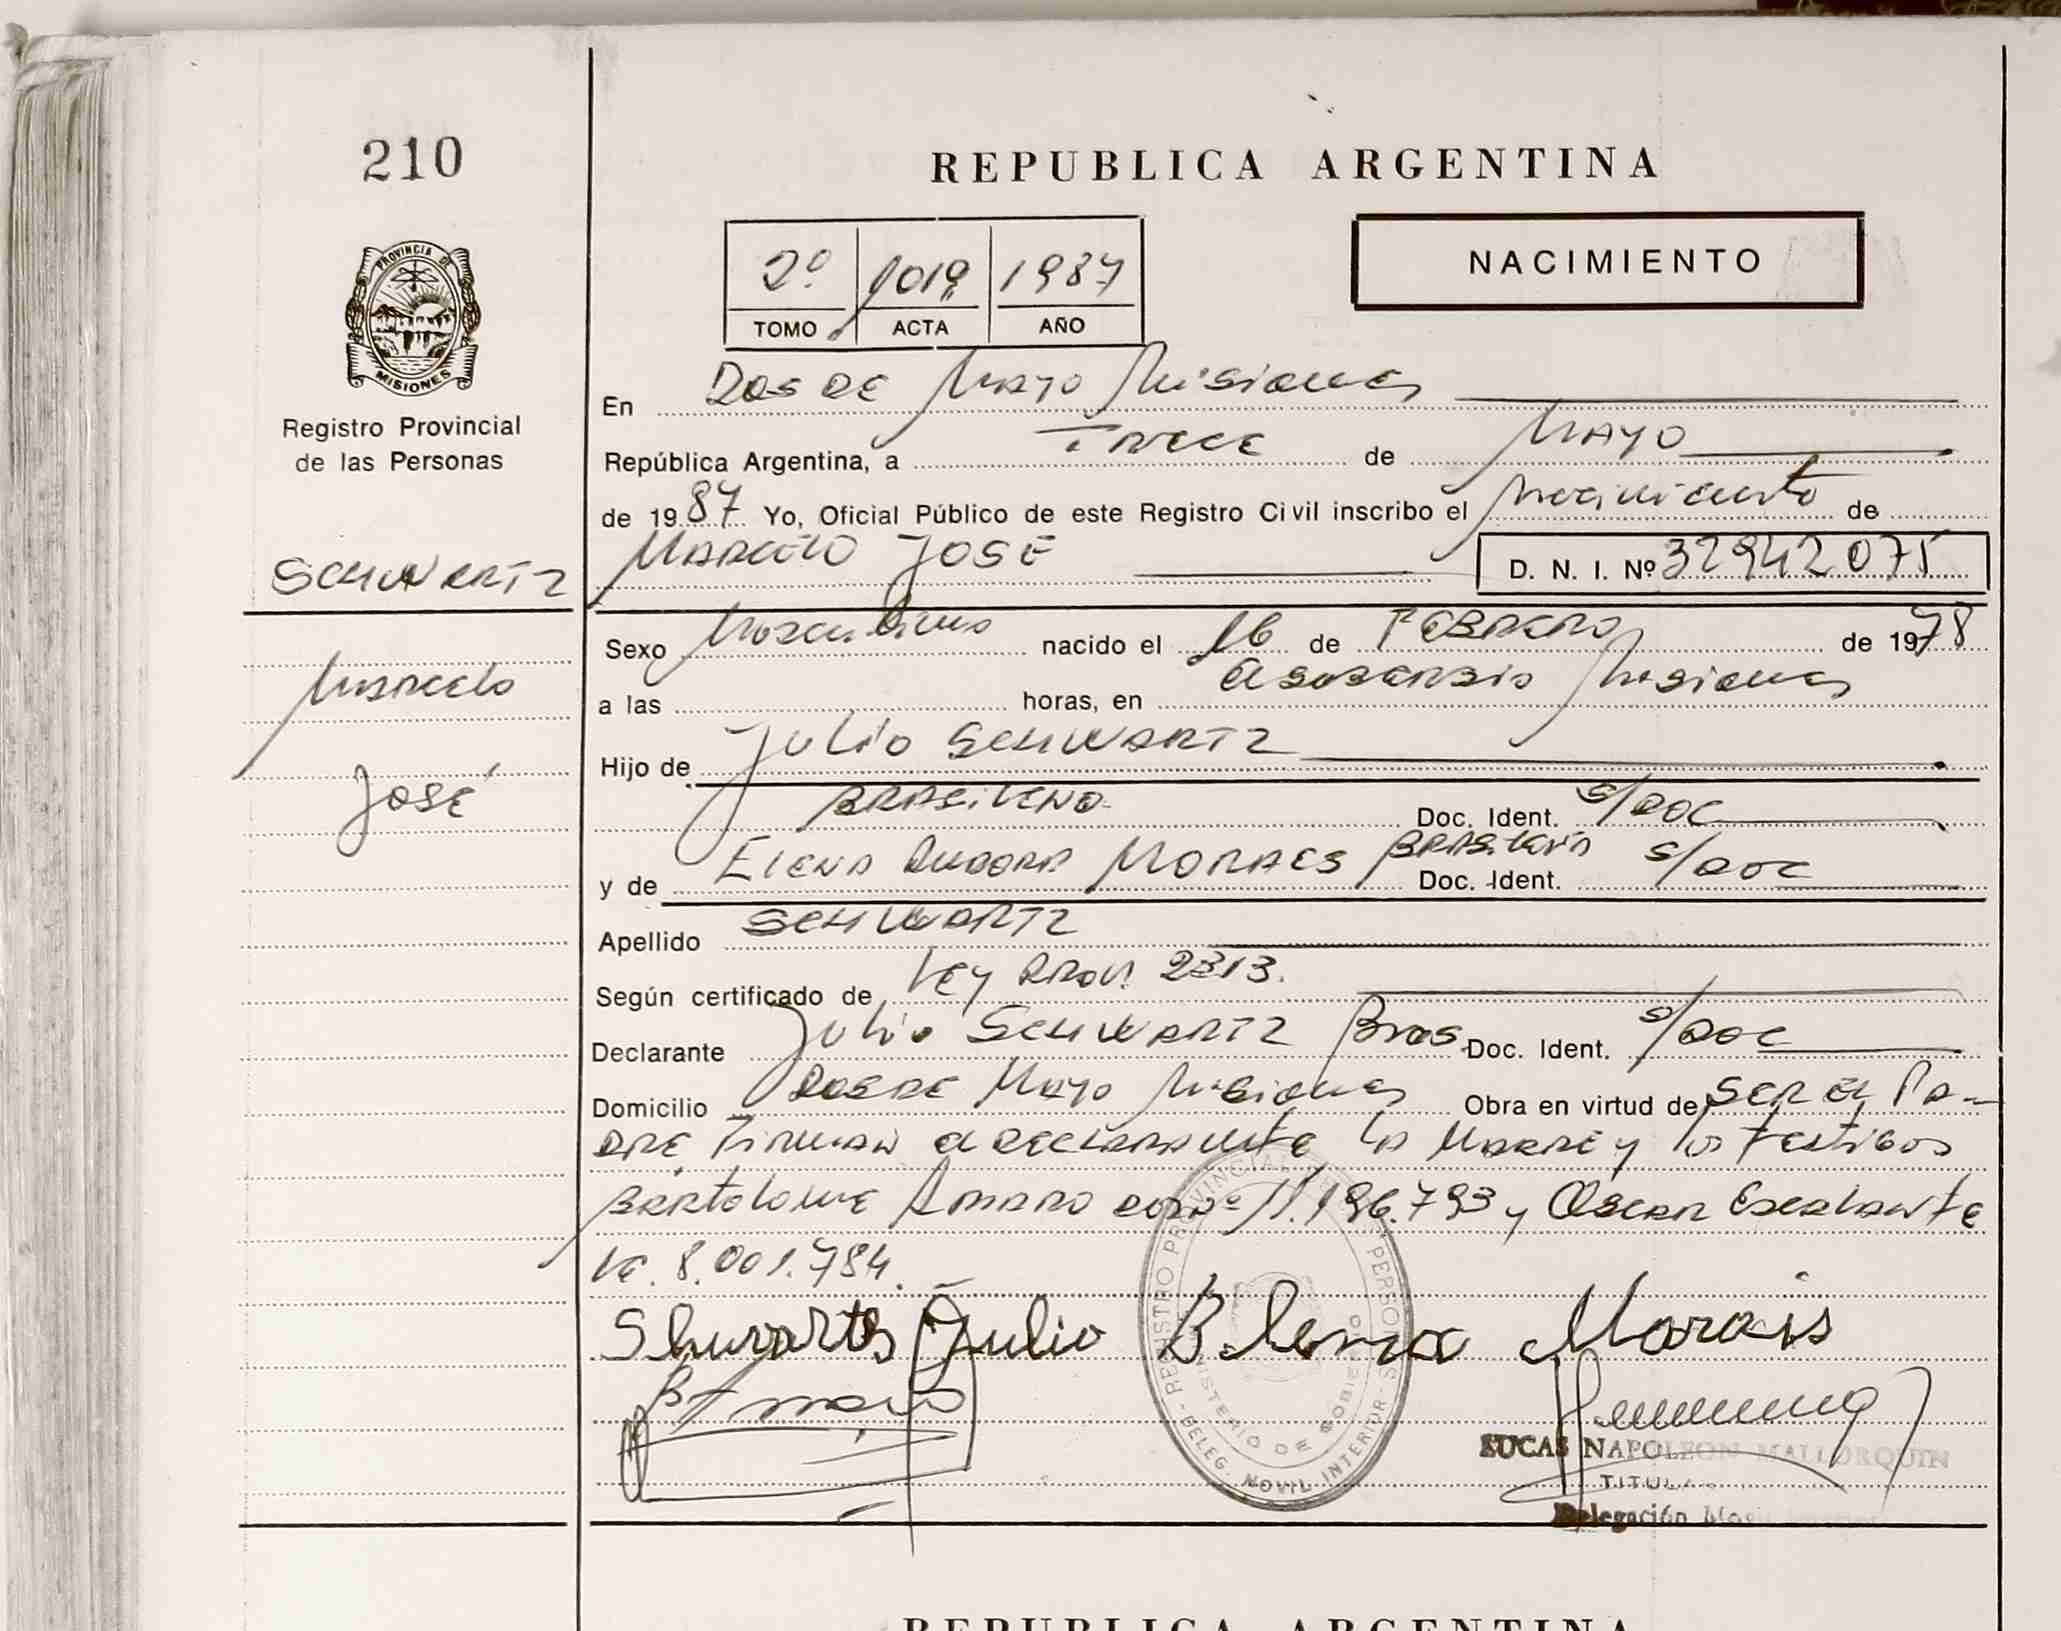 210
REPUBLICA ARGENTINA
PROVINCIA DE
MISIONES
Registro Provincial
de las Personas
2º 1019 1987
TOMO ACTA AÑO
NACIMIENTO
En Dos de Mayo Misiones
República Argentina, a Trece de Mayo
de 1987 Yo, Oficial Público de este Registro Civil inscribo el Nacimiento de
SCHWARTZ
Marcelo
José
MARCELO JOSE D. N. I. Nº 32942075
Sexo Masculino nacido el 16 de FEBRERO de 1978
a las horas, en Misiones
Hijo de Julio SCHWARTZ
BRASILEÑO Doc. Ident. S/DOC
y de ELENA MORAES BRASILEÑA Doc. Ident. S/DOC
Apellido SCHWARTZ
Según certificado de Ley Prov. 2313.
Declarante Julio SCHWARTZ Bras. Doc. Ident. S/DOC
Domicilio Dos de Mayo Misiones Obra en virtud de SER EL PA-
DRE Firman el DECLARANTE la MADRE y los testigos
Bartolome Amaro 11.196.793 y Oscar Escalante
LE. 8.001.784.
Shwarts Julio Elena Morais
B Amaro
REGISTRO PROVINCIAL PERSONAS
MINISTERIO DE GOBIERNO
DELEG. MOVIL INTERIOR
LUCAS NAPOLEON MALLORQUIN
TITULAR
Delegación
REPUBLICA ARGENTINA